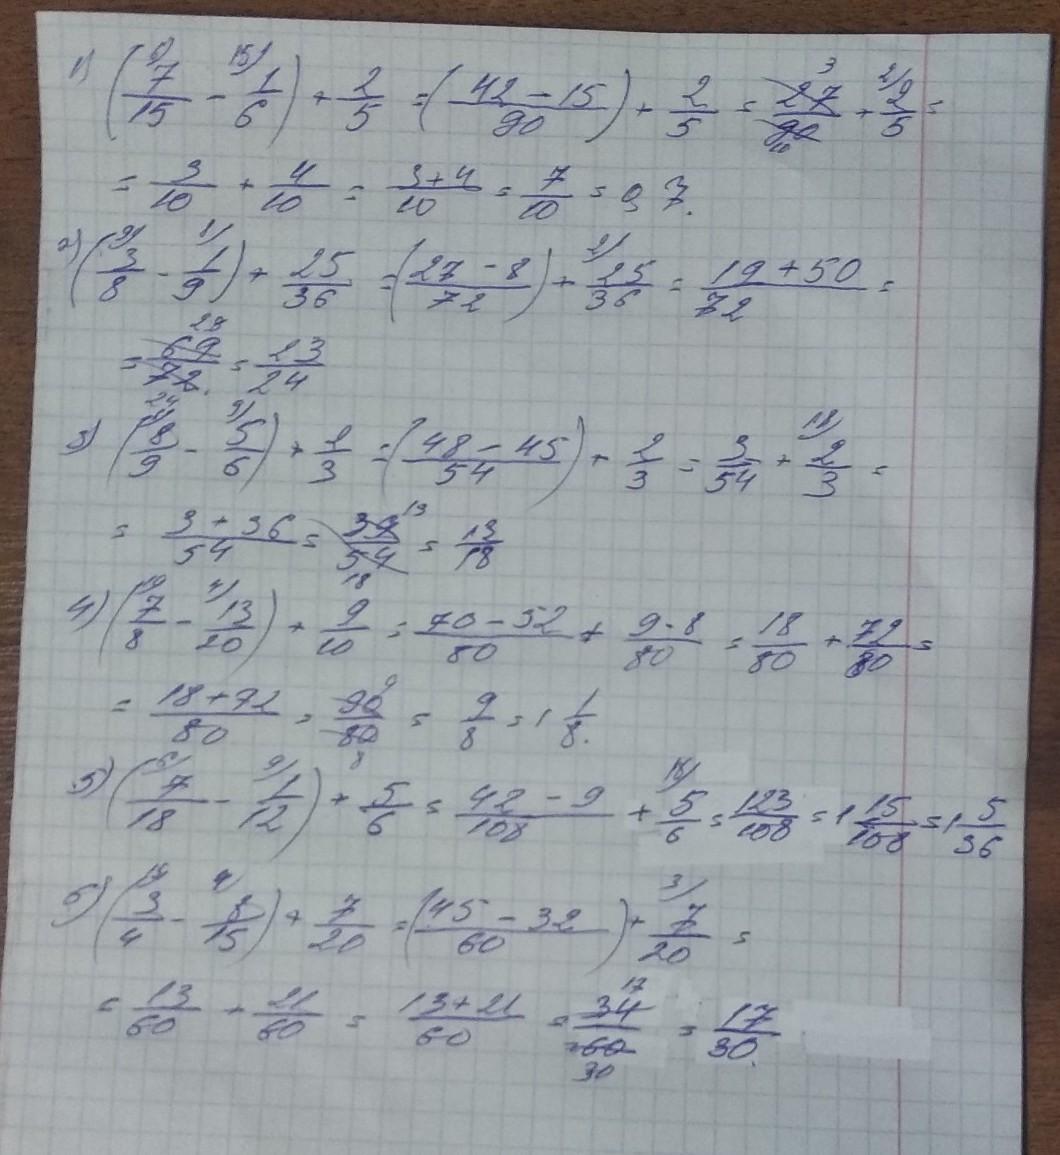 1) (7/15 - 1/6) + 2/5 = (42 - 15 / 90) + 2/5 = 27/90 + 2/5 =
= 3/10 + 4/10 = 3+4/10 = 7/10 = 0,7.
2) (3/8 - 1/9) + 25/36 = (27 - 8 / 72) + 25/36 = 19 + 50 / 72 =
= 69/72 = 23/24
3) (8/9 - 5/6) + 2/3 = (48 - 45 / 54) + 2/3 = 3/54 + 2/3 =
= 3 + 36 / 54 = 39/54 = 13/18
4) (7/8 - 13/20) + 9/10 = 70 - 52 / 80 + 9·8/80 = 18/80 + 72/80 =
= 18+72/80 = 90/80 = 9/8 = 1 1/8.
5) (7/18 - 1/12) + 5/6 = 42 - 9 / 108 + 5/6 = 123/108 = 1 15/108 = 1 5/36
6) (3/4 - 8/15) + 7/20 = (45 - 32 / 60) + 7/20 =
= 13/60 + 21/60 = 13+21/60 = 34/60 = 17/30.